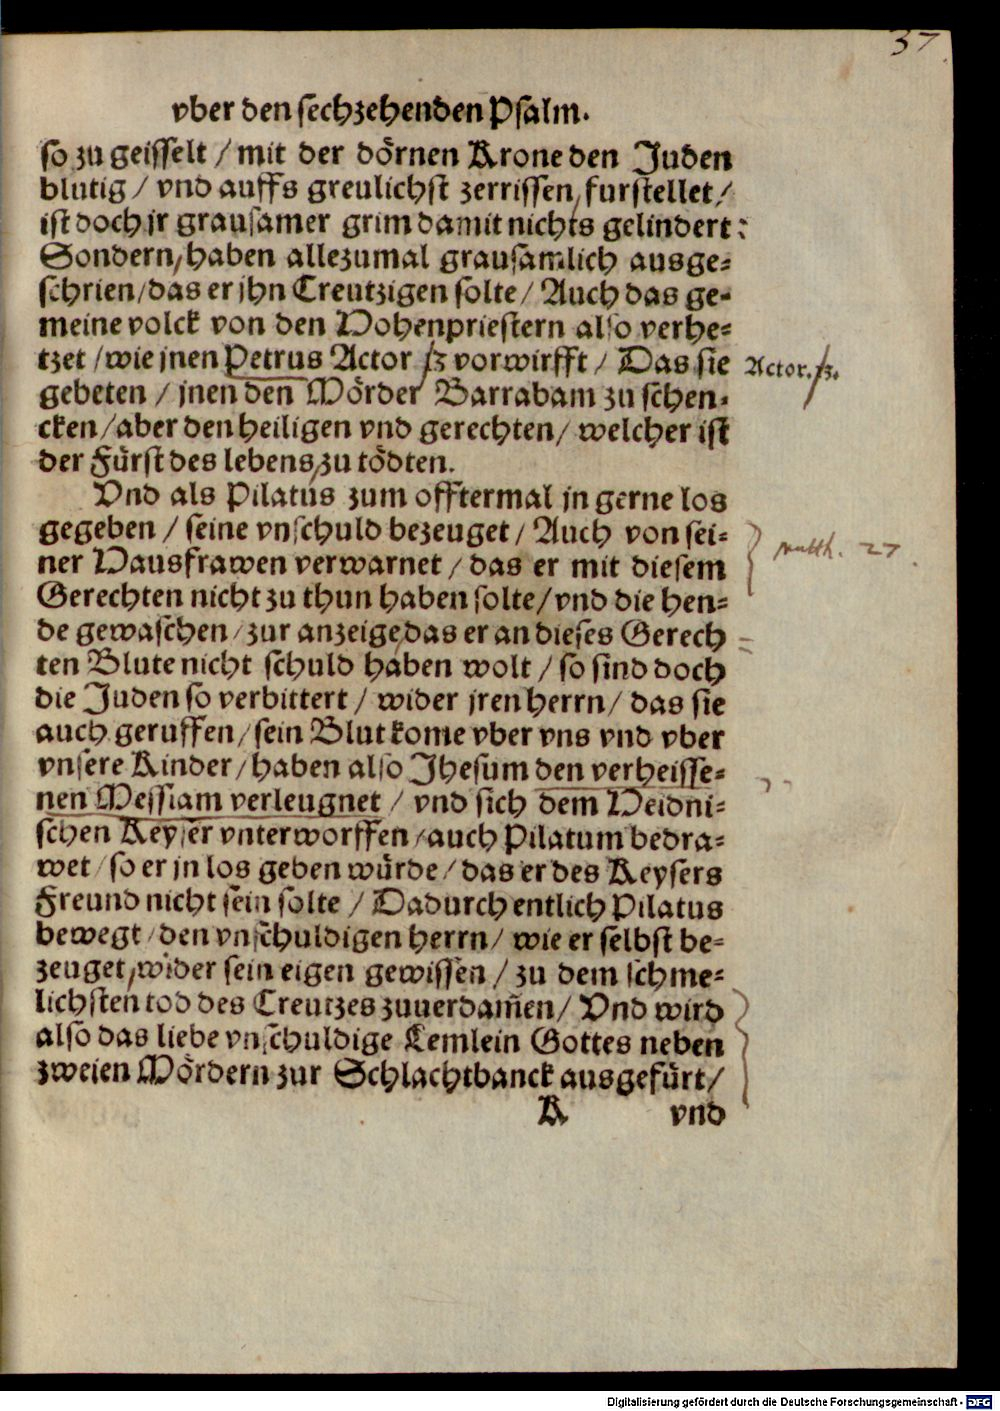 37
vber den sechzehenden Psalm.
so zu geisselt / mit der dörnen Krone den Juden
blutig / vnd auffs greulichst zerrissen, furstellet /
ist doch jr grausamer grim damit nichts gelindert:
Sondern, haben allezumal grausamlich ausge=
schrien / das er jhn Creutzigen solte / Auch das ge=
meine volck von den Hohenpriestern also verhe=
tzet / wie jnen Petrus Actor vorwirfft / Das sie
Actor.
gebeten / jnen den Mörder Barrabam zu schen=
cken / aber den heiligen vnd gerechten / welcher ist
der Fürst des lebens, zu tödten.
Vnd als Pilatus zum offtermal jn gerne los
gegeben / seine vnschuld bezeuget / Auch von sei=
matth. 27
ner Hausfrawen verwarnet / das er mit diesem
Gerechten nicht zu thun haben solte / vnd die hen=
de gewaschen / zur anzeige, das er an dieses Gerech
ten Blute nicht schuld haben wolt / so sind doch
die Juden so verbittert / wider jren herrn / das sie
auch geruffen / sein Blut kome vber vns vnd vber
vnsere Kinder / haben also Jhesum den verheisse=
nen Messiam verleugnet / vnd sich dem Heidni=
schen Keyser vnterworffen / auch Pilatum bedra=
wet / so er jn los geben würde / das er des Keysers
Freund nicht sein solte / Dadurch entlich Pilatus
bewegt / den vnschuldigen herrn / wie er selbst be=
zeuget, wider sein eigen gewissen / zu dem schme=
lichsten tod des Creutzes zuuerdam̃en / Vnd wird
also das liebe vnschuldige Lemlein Gottes neben
zweien Mördern zur Schlachtbanck ausgefürt /
K vnd
Digitalisierung gefördert durch die Deutsche Forschungsgemeinschaft - DFG